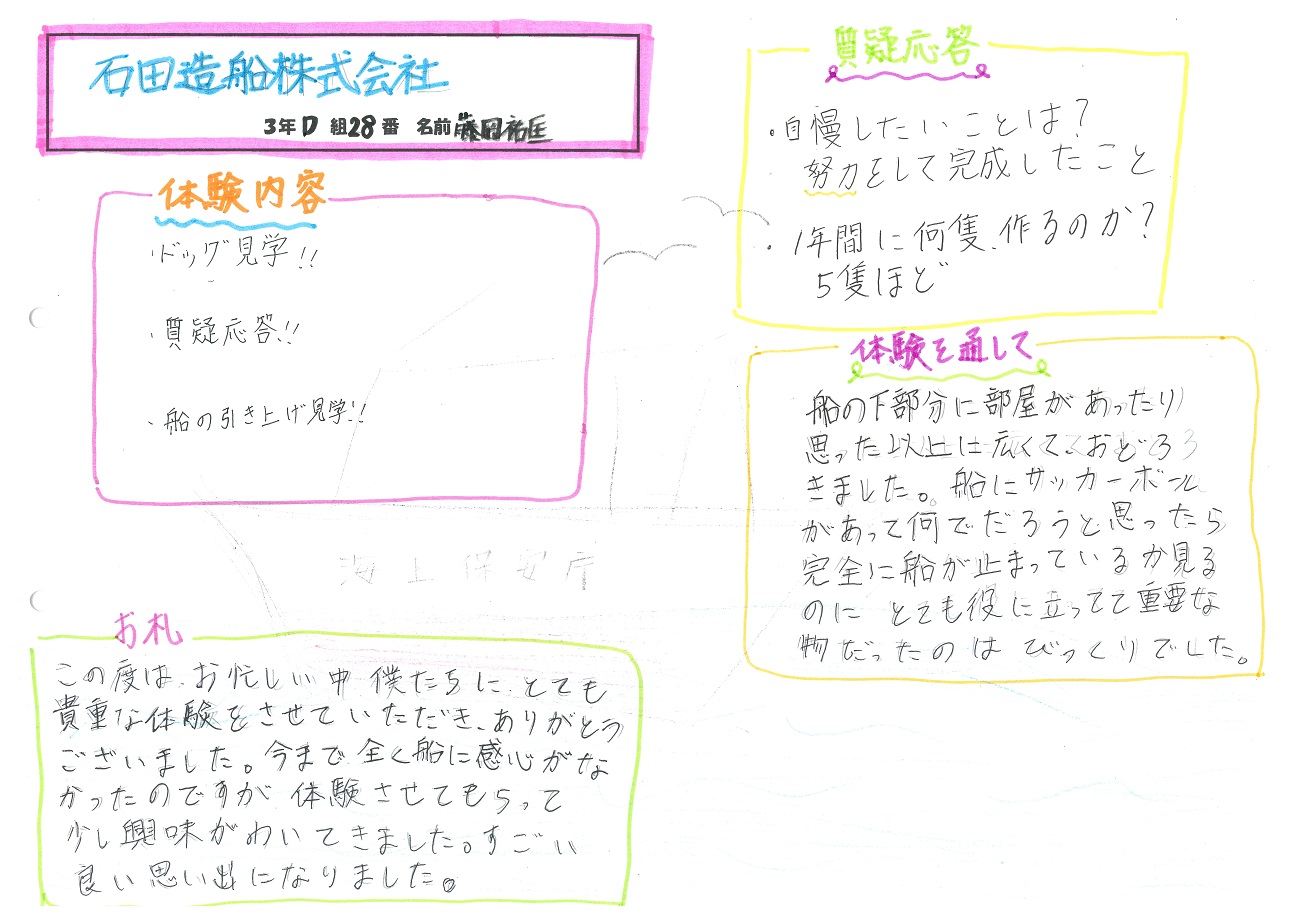 石田造船株式会社
3年D組28番 名前 藤田祐匡
体験内容
・ドッグ見学!!
・質疑応答!!
・船の引き上げ見学!!
海上保安庁
お札
この度は、お忙しい中僕たちに、とても
貴重な体験をさせていただき、ありがとう
ございました。今まで全く船に感心がな
かったのですが体験させてもらって
少し興味がわいてきました。すごい
良い思い出になりました。
質疑応答
・自慢したいことは?
努力をして完成したこと
・1年間に何隻、作るのか?
5隻ほど
体験を通して
船の下部分に部屋があったり
思った以上に広くて、おどろ
きました。船にサッカーボール
があって何でだろうと思ったら
完全に船が止まっているか見る
のにとても役に立ってて重要な
物だったのはびっくりでした。